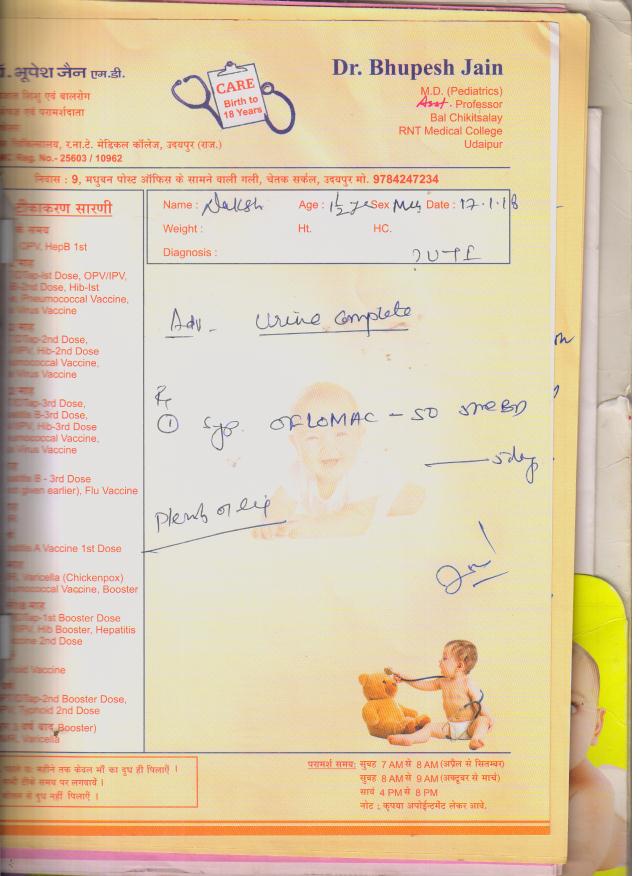 डॉ. भूपेश जैन एम.डी.
शिशु एवं बालरोग
एवं परामर्शदाता
चिकित्सालय, र.ना.टे. मेडिकल कॉलेज, उदयपुर (राज.)
Reg. No.- 25603 / 10962
CARE
Birth to
18 Years
Dr. Bhupesh Jain
M.D. (Pediatrics)
Asst. Professor
Bal Chikitsalay
RNT Medical College
Udaipur
निवास : 9, मधुबन पोस्ट ऑफिस के सामने वाली गली, चेतक सर्कल, उदयपुर मो. 9784247234
टीकाकरण सारणी
के समय
OPV, HepB 1st
माह
DTap-Ist Dose, OPV/IPV,
B-2nd Dose, Hib-Ist
Pneumococcal Vaccine,
Virus Vaccine
माह
DTap-2nd Dose,
IPV, Hib-2nd Dose
Pneumococcal Vaccine,
Virus Vaccine
माह
DTap-3rd Dose,
B-3rd Dose,
Hib-3rd Dose
Vaccine,
Virus Vaccine
B - 3rd Dose
given earlier), Flu Vaccine
A Vaccine 1st Dose
माह
Varicella (Chickenpox)
Vaccine, Booster
माह
DTap-1st Booster Dose
IPV, Hib Booster, Hepatitis
2nd Dose
Vaccine
DTap-2nd Booster Dose,
Typhoid 2nd Dose
वर्ष बाद Booster)
Varicella
Name : Daksh Age : 1 1/2 ye Sex Date : 17.1.18
Weight : Ht. HC.
Diagnosis : ? UTI
Adv. Urine complete
Rx
① Syp. OFLOMAC - 50 5ml BD
5 day
Plenty of
माह: महीने तक केवल माँ का दूध ही पिलाएँ ।
टीके समय पर लगवायें ।
से दूध नहीं पिलाएँ ।
परामर्श समय: सुबह 7 AM से 8 AM (अप्रैल से सितम्बर)
सुबह 8 AM से 9 AM (अक्टूबर से मार्च)
सायं 4 PM से 8 PM
नोट : कृपया अपोईन्टमेंट लेकर आवे.